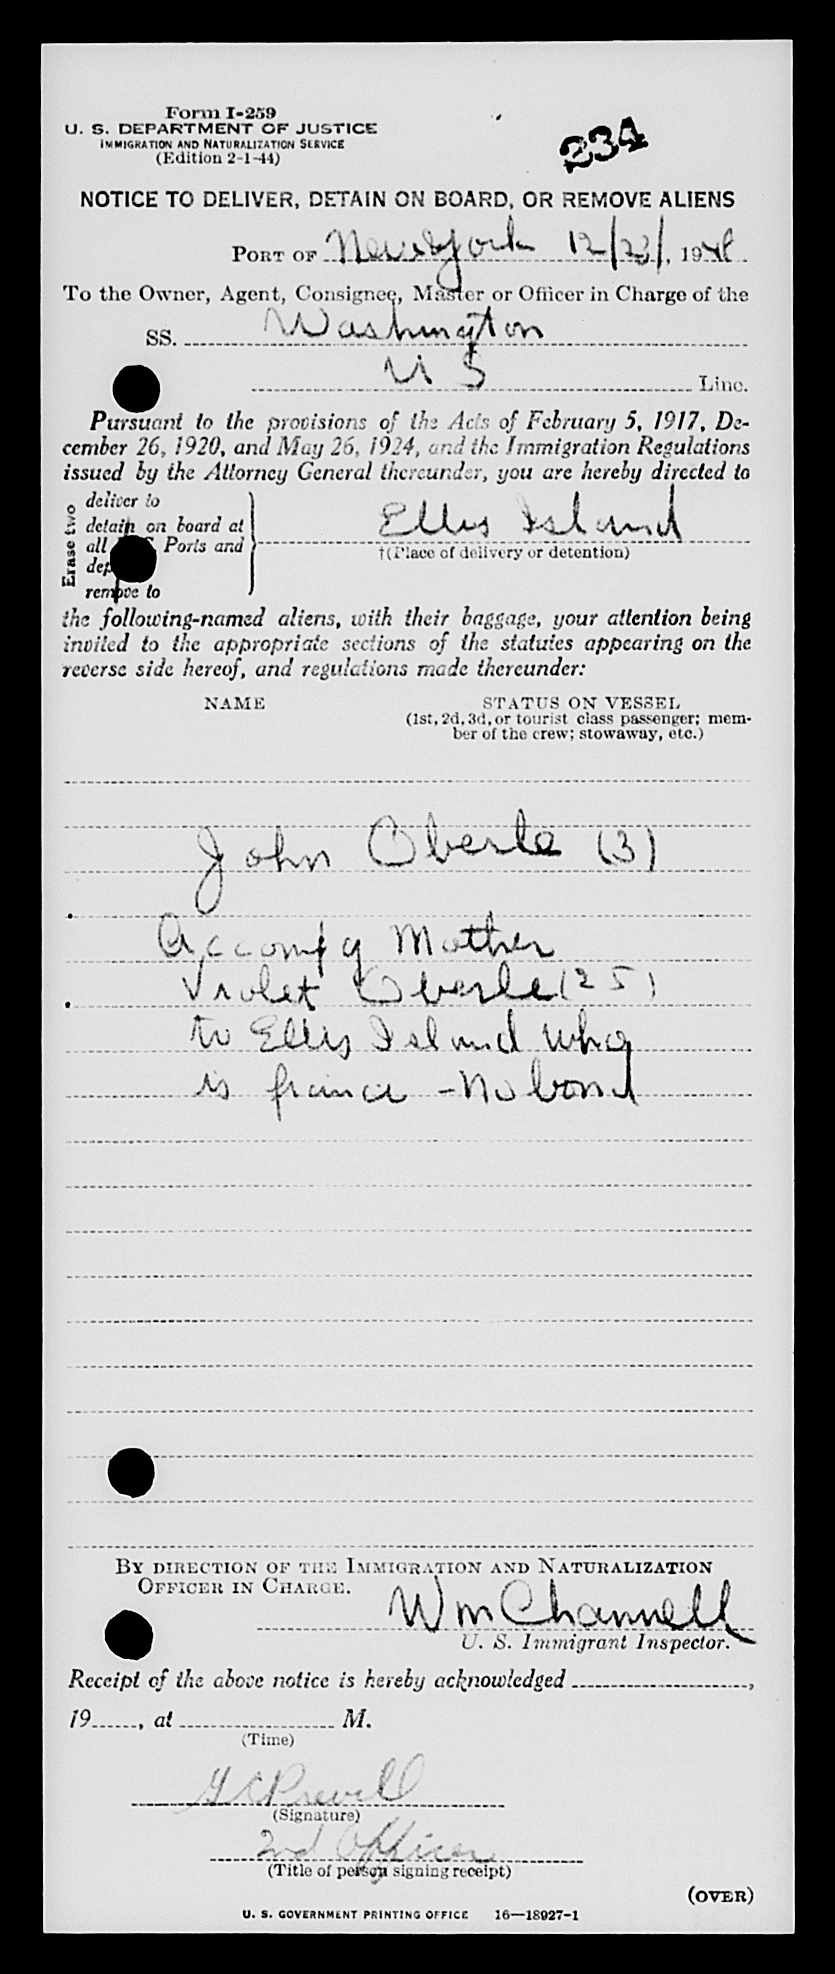 Form I-259
U. S. DEPARTMENT OF JUSTICE
IMMIGRATION AND NATURALIZATION SERVICE
(Edition 2-1-44)
334
NOTICE TO DELIVER, DETAIN ON BOARD, OR REMOVE ALIENS
PORT OF New York 12/23/, 1948.
To the Owner, Agent, Consignee, Master or Officer in Charge of the
SS. Washington
U S Line.
Pursuant to the provisions of the Acts of February 5, 1917, De-
cember 26, 1920, and May 26, 1924, and the Immigration Regulations
issued by the Attorney General thereunder, you are hereby directed to
Erase two
deliver to
detain on board at
all Ports and
remove to
Ellis Island
†(Place of delivery or detention)
the following-named aliens, with their baggage, your attention being
invited to the appropriate sections of the statutes appearing on the
reverse side hereof, and regulations made thereunder:
NAME STATUS ON VESSEL
(1st, 2d, 3d, or tourist class passenger; mem-
ber of the crew; stowaway, etc.)
John Oberle (3)
Accompg Mother
Violet Oberle (25)
to Ellis Island who
is - No bond
BY DIRECTION OF THE IMMIGRATION AND NATURALIZATION
OFFICER IN CHARGE.
Wm Channell
U. S. Immigrant Inspector.
Receipt of the above notice is hereby acknowledged ,
19 , at M.
(Time)
(Signature)
2nd Officer
(Title of person signing receipt)
(OVER)
U. S. GOVERNMENT PRINTING OFFICE 16—18927-1